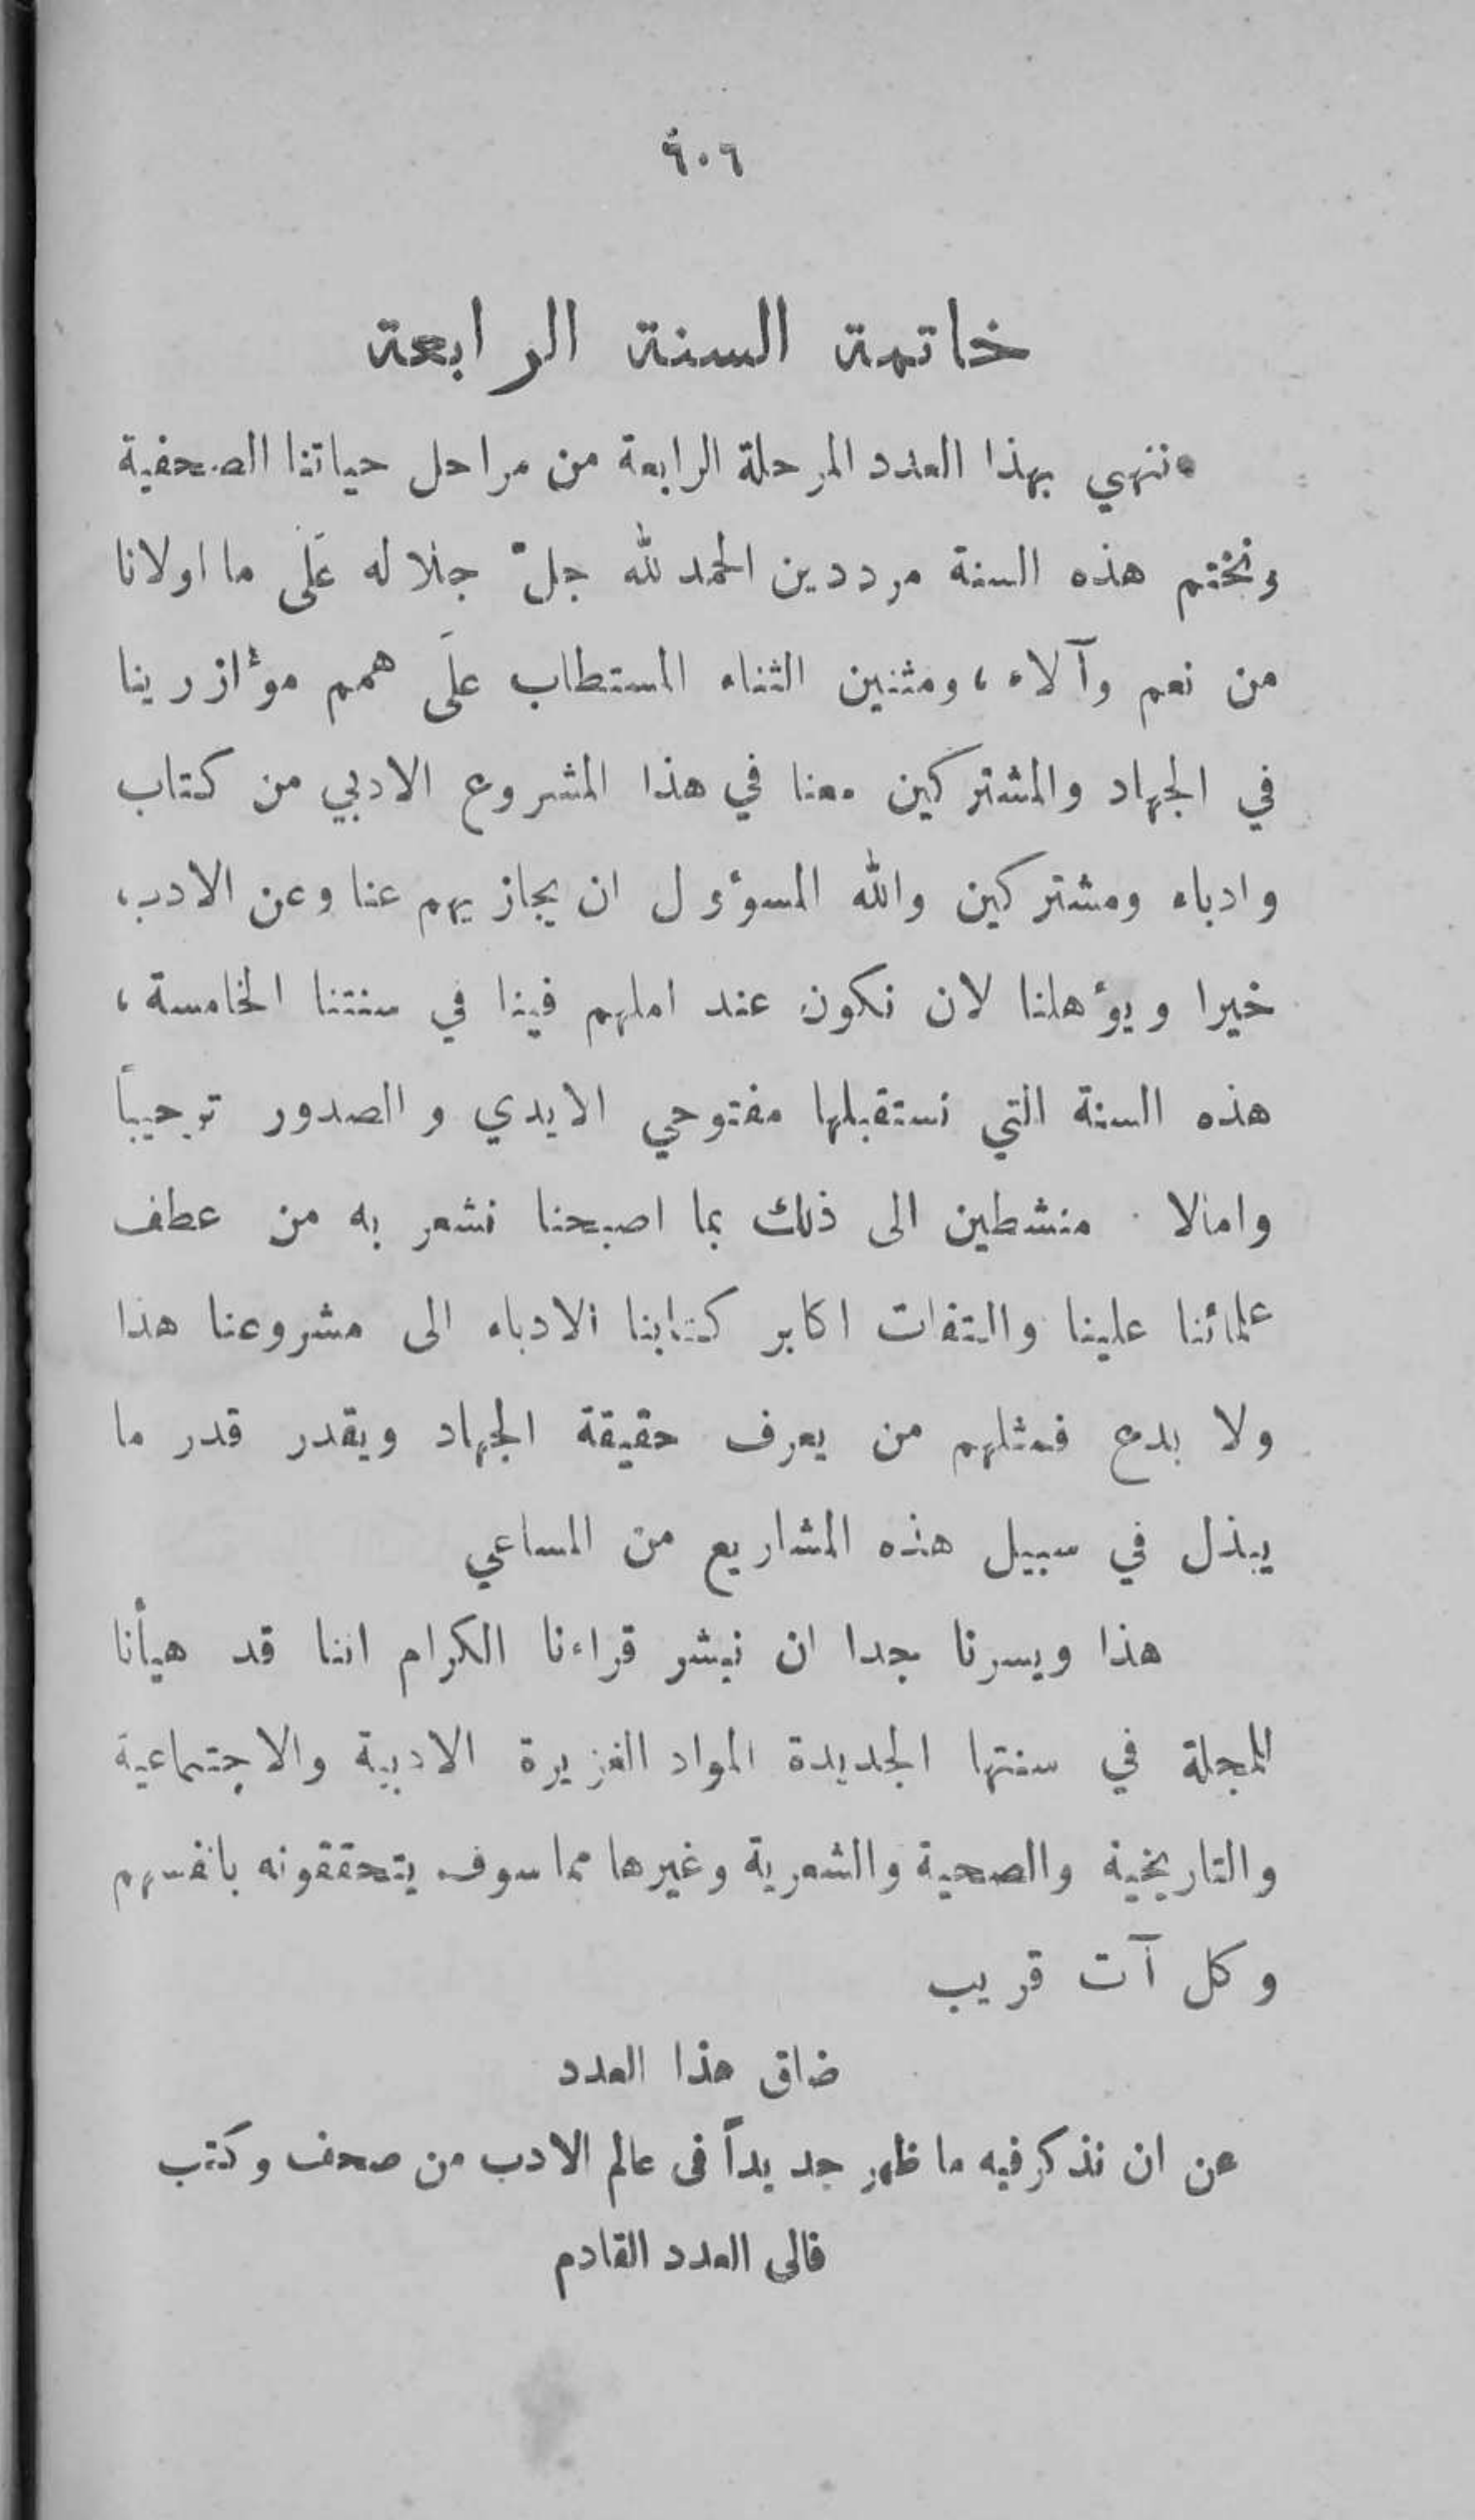 ٦٠٦
خاتمة السنة الرابعة
ننهي بهذا العدد المرحلة الرابعة من مراحل حياتنا الصحفية
ونختم هذه السنة مرددين الحمد لله جلّ جلاله عَلَى ما اولانا
من نعم وآلاء ، ومثنين الثناء المستطاب علَى همم مؤازرينا
في الجهاد والمشتركين معنا في هذا المشروع الادبي من كتاب
وادباء ومشتركين والله المسوؤل ان يجازيهم عنا وعن الادب ،
خيرا ويؤهلنا لان نكون عند املهم فينا في سنتنا الخامسة ،
هذه السنة التي نستقبلها مفتوحي الايدي والصدور ترحيباً
وامالا . منشطين الى ذلك بما اصبحنا نشعر به من عطف
علمائنا علينا والتفات اكابر كتابنا الادباء الى مشروعنا هذا
ولا بدع فمثلهم من يعرف حقيقة الجهاد ويقدر قدر ما
يبذل في سبيل هذه المشاريع من المساعي
هذا ويسرنا جدا ان نبشر قراءنا الكرام اننا قد هيأنا
للمجلة في سنتها الجديدة المواد الغزيرة الادبية والاجتماعية
والتاريخية والصحية والشعرية وغيرها مما سوف يتحققونه بانفسهم
وكل آت قريب
ضاق هذا العدد
عن ان نذكر فيه ما ظهر جديداً في عالم الادب من صحف وكتب
فالى العدد القادم